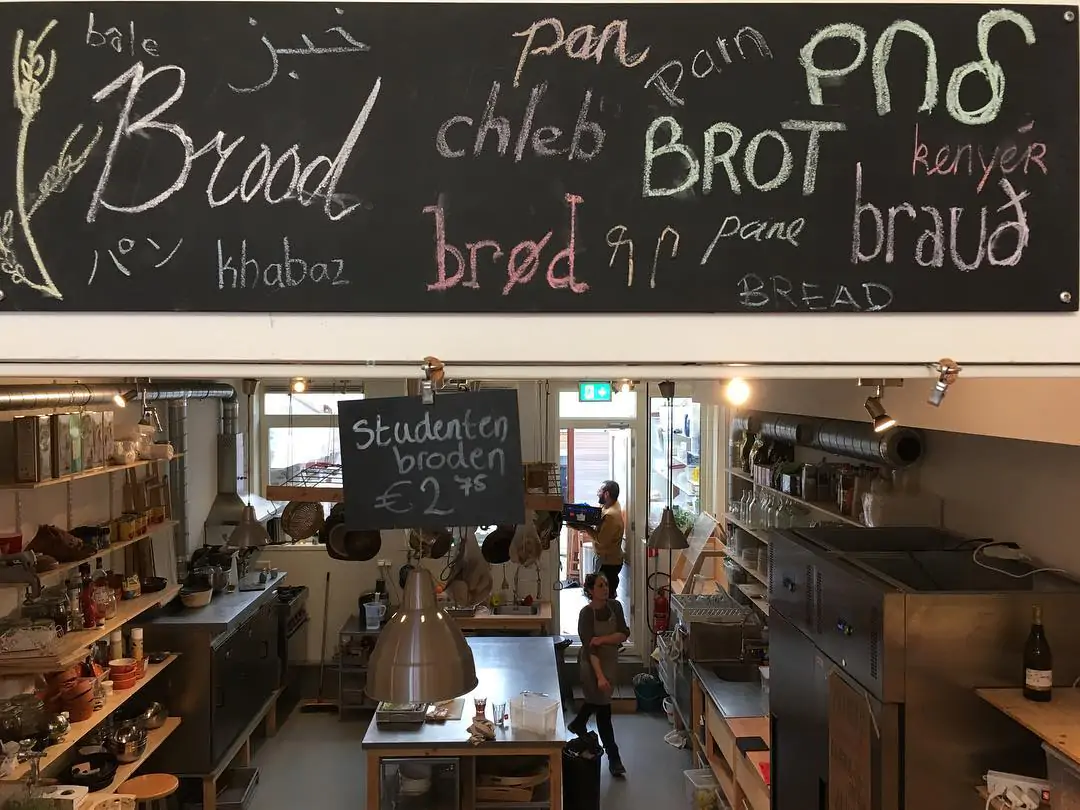 bâle
خبز
pan
pain
Brood
chleb
BROT
kenyér
パン
khabaz
brød
pane
brauð
BREAD
Studenten
broden
€2 75